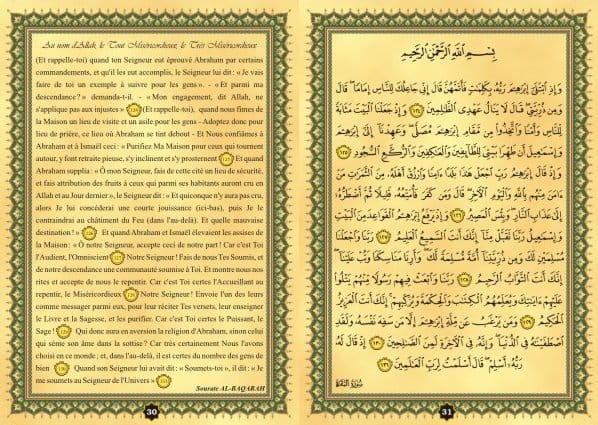 Au nom d'Allah, le Tout Miséricordieux, le Très Miséricordieux
(Et rappelle-toi) quand ton Seigneur eut éprouvé Abraham par certains
commandements, et qu'il les eut accomplis, le Seigneur lui dit : « Je vais
faire de toi un exemple à suivre pour les gens». - «Et parmi ma
descendance? » demanda-t-il. - «Mon engagement, dit Allah, ne
s'applique pas aux injustes » 124 (Et rappelle-toi), quand nous fîmes de
la Maison un lieu de visite et un asile pour les gens - Adoptez donc pour
lieu de prière, ce lieu où Abraham se tint debout - Et Nous confiâmes à
Abraham et à Ismaël ceci : « Purifiez Ma Maison pour ceux qui tournent
autour, y font retraite pieuse, s'y inclinent et s'y prosternent 125 Et quand
Abraham supplia : « Ô mon Seigneur, fais de cette cité un lieu de sécurité,
et fais attribution des fruits à ceux qui parmi ses habitants auront cru en
Allah et au Jour dernier », le Seigneur dit : « Et quiconque n'y aura pas cru,
alors Je lui concéderai une courte jouissance (ici-bas), puis Je le
contraindrai au châtiment du Feu (dans l'au-delà). Et quelle mauvaise
destination ! » 126 Et quand Abraham et Ismaël élevaient les assises de
la Maison : «Ô notre Seigneur, accepte ceci de notre part ! Car c'est Toi
l'Audient, l'Omniscient 127 Notre Seigneur ! Fais de nous Tes Soumis, et
de notre descendance une communauté soumise à Toi. Et montre nous nos
rites et accepte de nous le repentir. Car c'est Toi certes l'Accueillant au
repentir, le Miséricordieux 128 Notre Seigneur ! Envoie l'un des leurs
comme messager parmi eux, pour leur réciter Tes versets, leur enseigner
le Livre et la Sagesse, et les purifier. Car c'est Toi certes le Puissant, le
Sage ! 129 Qui donc aura en aversion la religion d'Abraham, sinon celui
qui sème son âme dans la sottise ? Car très certainement Nous l'avons
choisi en ce monde ; et, dans l'au-delà, il est certes du nombre des gens de
bien 130 Quand son Seigneur lui avait dit : « Soumets-toi », il dit : « Je
me soumets au Seigneur de l'Univers » 131
Sourate AL-BAQARAH
30
بِسْمِ اللَّهِ الرَّحْمَٰنِ الرَّحِيمِ
وَإِذِ ابْتَلَىٰ إِبْرَٰهِـۧمَ رَبُّهُ بِكَلِمَٰتٍ فَأَتَمَّهُنَّ قَالَ إِنِّي جَاعِلُكَ لِلنَّاسِ إِمَامًا قَالَ
وَمِن ذُرِّيَّتِي قَالَ لَا يَنَالُ عَهْدِي الظَّٰلِمِينَ ١٢٤ وَإِذْ جَعَلْنَا الْبَيْتَ مَثَابَةً
لِّلنَّاسِ وَأَمْنًا وَاتَّخِذُوا مِن مَّقَامِ إِبْرَٰهِـۧمَ مُصَلًّى وَعَهِدْنَا إِلَىٰ إِبْرَٰهِـۧمَ
وَإِسْمَٰعِيلَ أَن طَهِّرَا بَيْتِيَ لِلطَّائِفِينَ وَالْعَٰكِفِينَ وَالرُّكَّعِ السُّجُودِ
١٢٥ وَإِذْ قَالَ إِبْرَٰهِـۧمُ رَبِّ اجْعَلْ هَٰذَا بَلَدًا ءَامِنًا وَارْزُقْ أَهْلَهُ مِنَ الثَّمَرَٰتِ مَنْ
ءَامَنَ مِنْهُم بِاللَّهِ وَالْيَوْمِ الْءَاخِرِ قَالَ وَمَن كَفَرَ فَأُمَتِّعُهُ قَلِيلًا ثُمَّ أَضْطَرُّهُ
إِلَىٰ عَذَابِ النَّارِ وَبِئْسَ الْمَصِيرُ ١٢٦ وَإِذْ يَرْفَعُ إِبْرَٰهِـۧمُ الْقَوَاعِدَ مِنَ الْبَيْتِ
وَإِسْمَٰعِيلُ رَبَّنَا تَقَبَّلْ مِنَّا إِنَّكَ أَنتَ السَّمِيعُ الْعَلِيمُ ١٢٧ رَبَّنَا وَاجْعَلْنَا
مُسْلِمَيْنِ لَكَ وَمِن ذُرِّيَّتِنَا أُمَّةً مُّسْلِمَةً لَّكَ وَأَرِنَا مَنَاسِكَنَا وَتُبْ عَلَيْنَا
إِنَّكَ أَنتَ التَّوَّابُ الرَّحِيمُ ١٢٨ رَبَّنَا وَابْعَثْ فِيهِمْ رَسُولًا مِّنْهُمْ يَتْلُوا
عَلَيْهِمْ ءَايَٰتِكَ وَيُعَلِّمُهُمُ الْكِتَٰبَ وَالْحِكْمَةَ وَيُزَكِّيهِمْ إِنَّكَ أَنتَ الْعَزِيزُ
الْحَكِيمُ ١٢٩ وَمَن يَرْغَبُ عَن مِّلَّةِ إِبْرَٰهِـۧمَ إِلَّا مَن سَفِهَ نَفْسَهُ وَلَقَدِ
اصْطَفَيْنَٰهُ فِي الدُّنْيَا وَإِنَّهُ فِي الْءَاخِرَةِ لَمِنَ الصَّٰلِحِينَ ١٣٠ إِذْ قَالَ لَهُ
رَبُّهُ أَسْلِمْ قَالَ أَسْلَمْتُ لِرَبِّ الْعَٰلَمِينَ ١٣١
سُورَةُ الْبَقَرَةِ
31